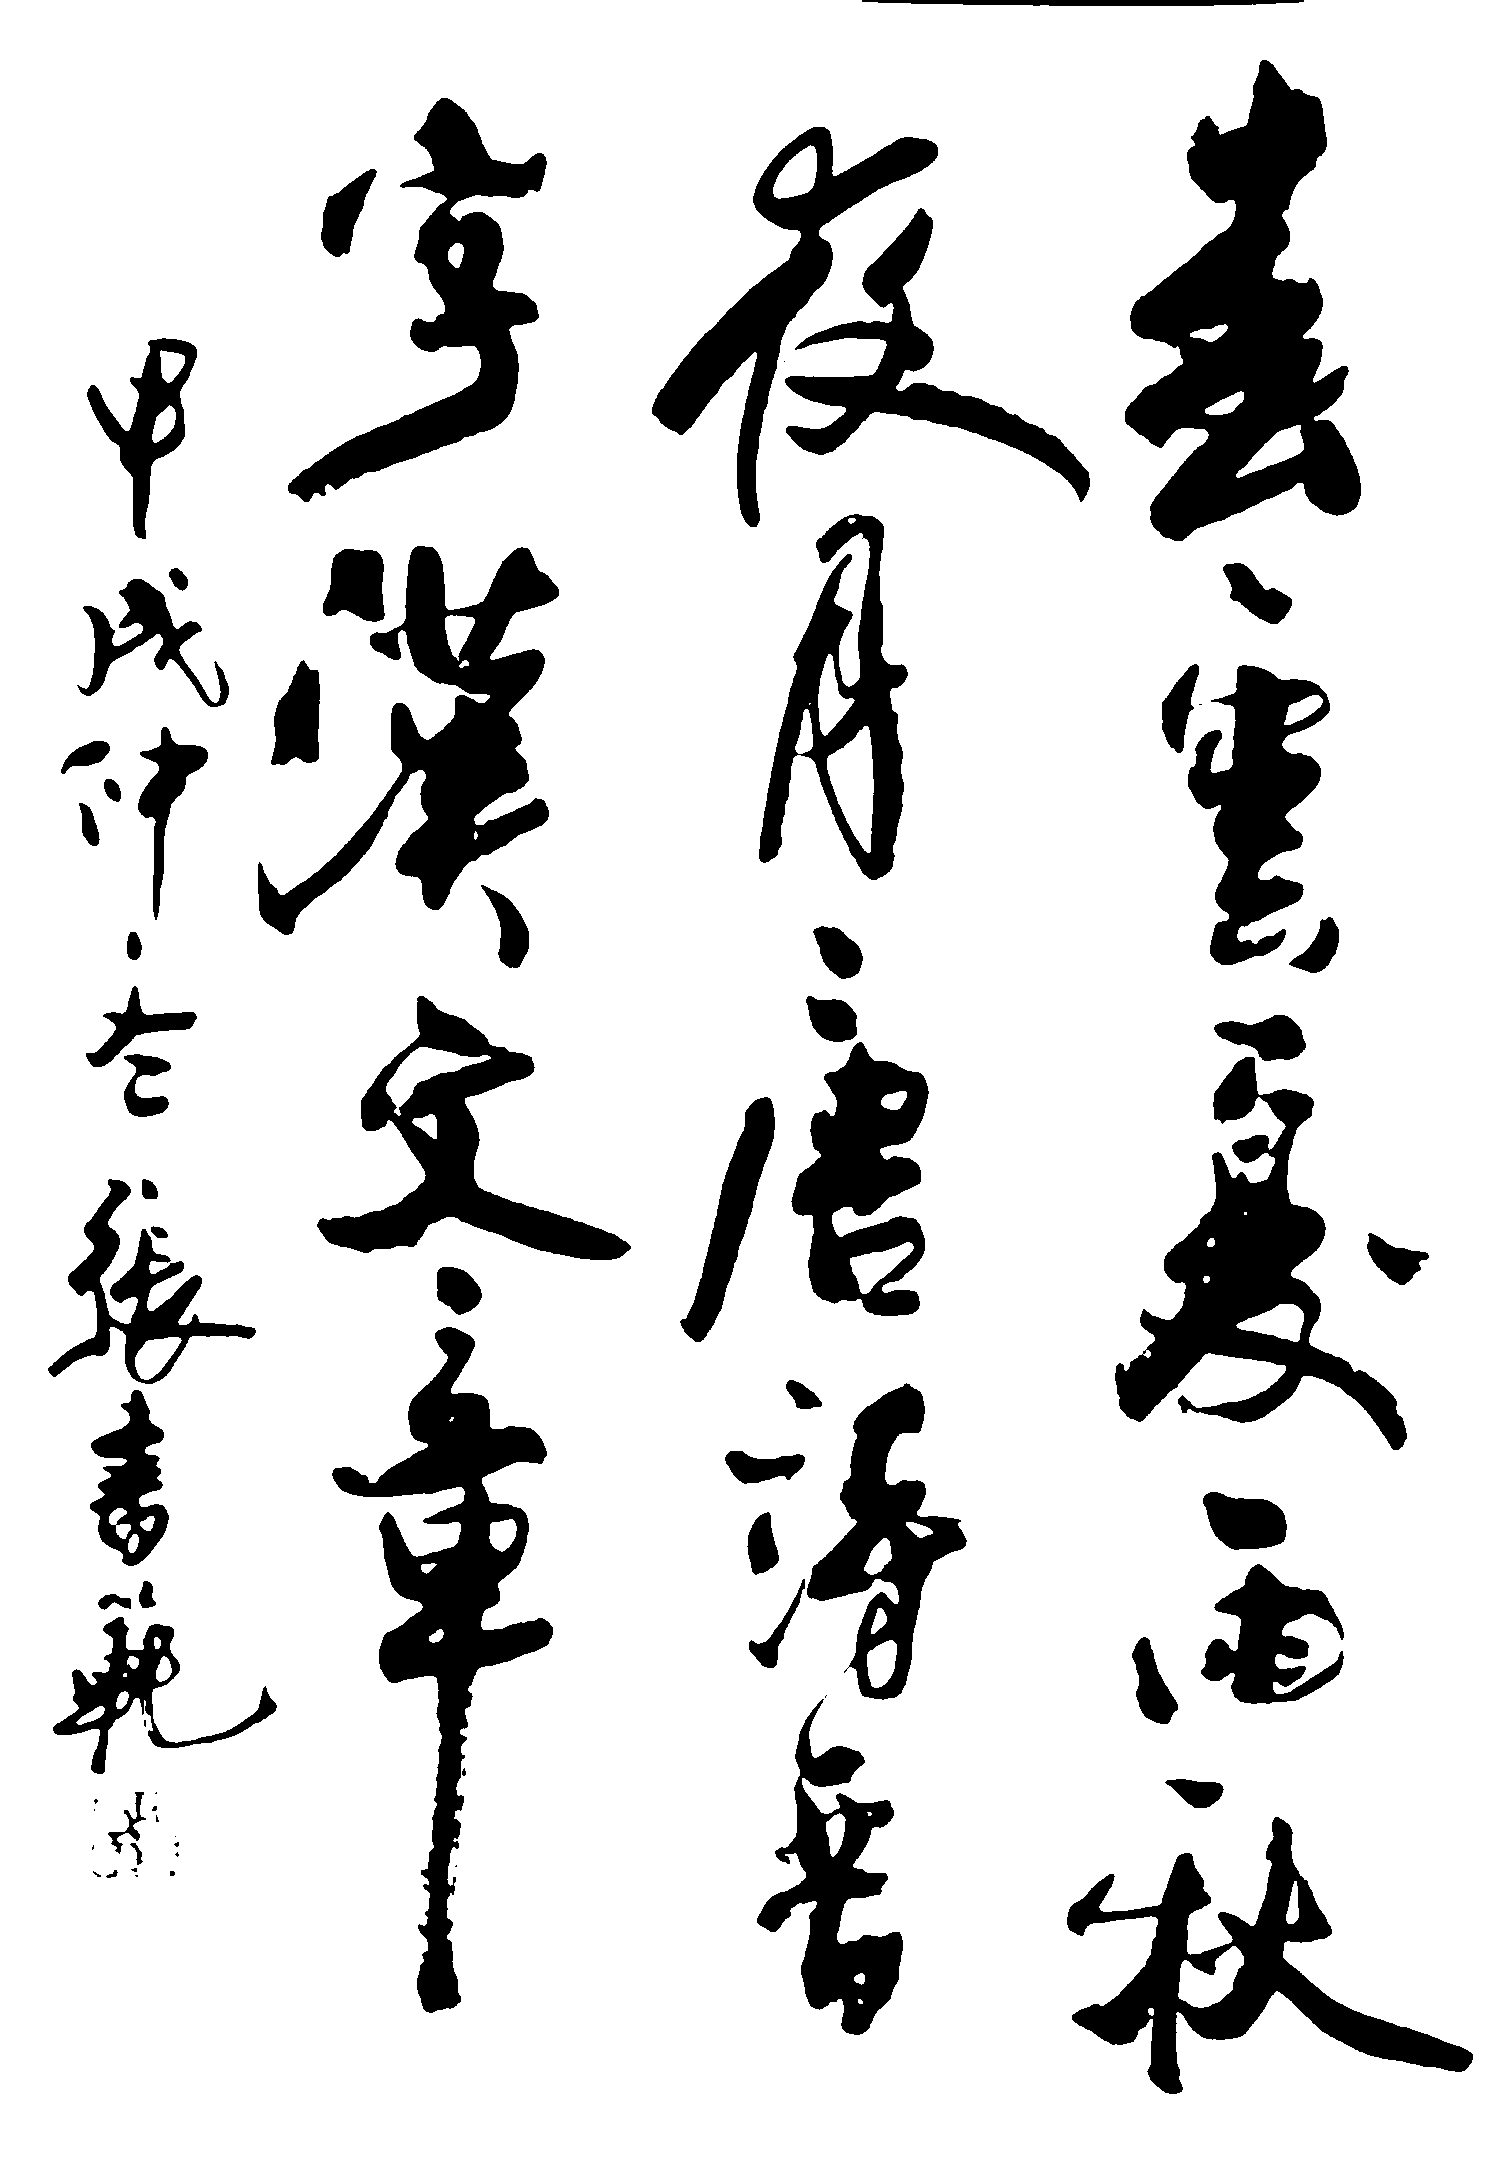 春雲夏雨秋
夜月唐詩晉
字漢文章
甲戌仲春張書範